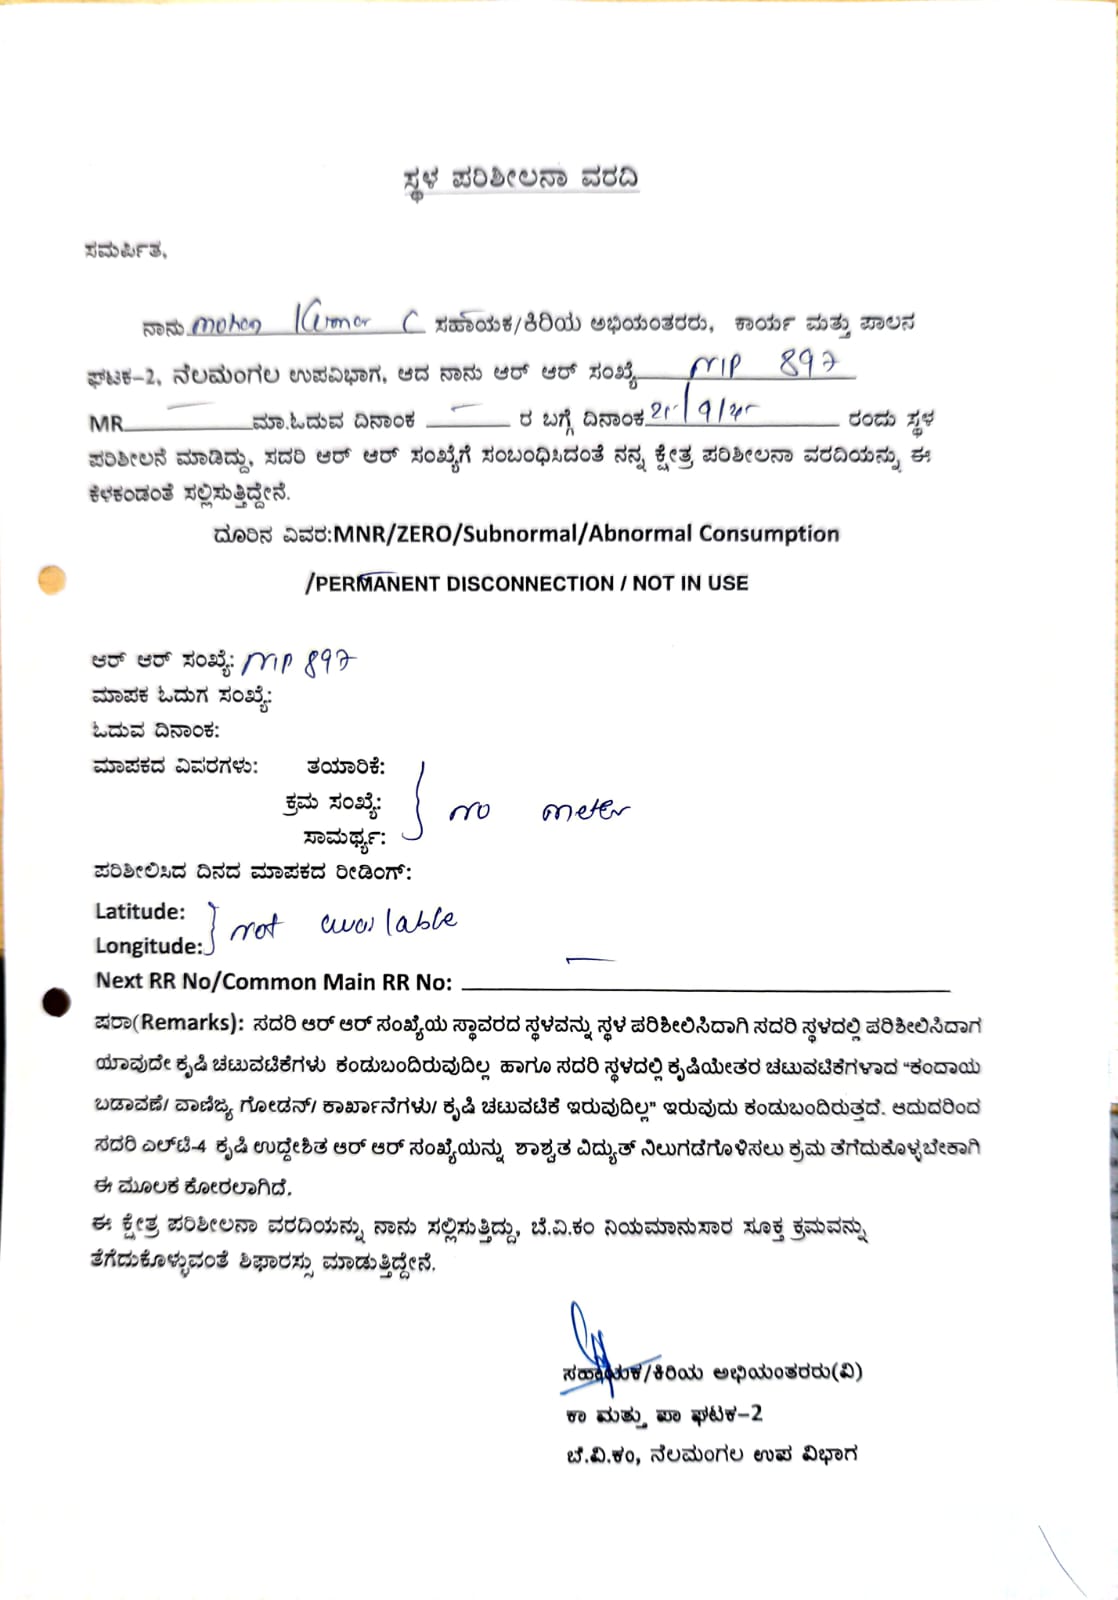 ಸ್ಥಳ ಪರಿಶೀಲನಾ ವರದಿ
ಸಮರ್ಪಿತ,
ನಾನು Mohan Kumar C ಸಹಾಯಕ/ಕಿರಿಯ ಅಭಿಯಂತರರು, ಕಾರ್ಯ ಮತ್ತು ಪಾಲನ
ಘಟಕ-2, ನೆಲಮಂಗಲ ಉಪವಿಭಾಗ, ಆದ ನಾನು ಆರ್ ಆರ್ ಸಂಖ್ಯೆ MP 897
MR — ಮಾ.ಓದುವ ದಿನಾಂಕ — ರ ಬಗ್ಗೆ ದಿನಾಂಕ /9/ ರಂದು ಸ್ಥಳ
ಪರಿಶೀಲನೆ ಮಾಡಿದ್ದು, ಸದರಿ ಆರ್ ಆರ್ ಸಂಖ್ಯೆಗೆ ಸಂಬಂಧಿಸಿದಂತೆ ನನ್ನ ಕ್ಷೇತ್ರ ಪರಿಶೀಲನಾ ವರದಿಯನ್ನು ಈ
ಕೆಳಕಂಡಂತೆ ಸಲ್ಲಿಸುತ್ತಿದ್ದೇನೆ.
ದೂರಿನ ವಿವರ:MNR/ZERO/Subnormal/Abnormal Consumption
/PERMANENT DISCONNECTION / NOT IN USE
ಆರ್ ಆರ್ ಸಂಖ್ಯೆ: MP 897
ಮಾಪಕ ಓದುಗ ಸಂಖ್ಯೆ:
ಓದುವ ದಿನಾಂಕ:
ಮಾಪಕದ ವಿವರಗಳು: ತಯಾರಿಕೆ:
ಕ್ರಮ ಸಂಖ್ಯೆ: no meter
ಸಾಮರ್ಥ್ಯ:
ಪರಿಶೀಲಿಸಿದ ದಿನದ ಮಾಪಕದ ರೀಡಿಂಗ್:
Latitude: not available
Longitude:
Next RR No/Common Main RR No: —
ಷರಾ(Remarks): ಸದರಿ ಆರ್ ಆರ್ ಸಂಖ್ಯೆಯ ಸ್ಥಾವರದ ಸ್ಥಳವನ್ನು ಸ್ಥಳ ಪರಿಶೀಲಿಸಿದಾಗಿ ಸದರಿ ಸ್ಥಳದಲ್ಲಿ ಪರಿಶೀಲಿಸಿದಾಗ
ಯಾವುದೇ ಕೃಷಿ ಚಟುವಟಿಕೆಗಳು ಕಂಡುಬಂದಿರುವುದಿಲ್ಲ ಹಾಗೂ ಸದರಿ ಸ್ಥಳದಲ್ಲಿ ಕೃಷಿಯೇತರ ಚಟುವಟಿಕೆಗಳಾದ “ಕಂದಾಯ
ಬಡಾವಣೆ/ ವಾಣಿಜ್ಯ ಗೋಡನ್/ ಕಾರ್ಖಾನೆಗಳು/ ಕೃಷಿ ಚಟುವಟಿಕೆ ಇರುವುದಿಲ್ಲ” ಇರುವುದು ಕಂಡುಬಂದಿರುತ್ತದೆ. ಆದುದರಿಂದ
ಸದರಿ ಎಲ್‌ಟಿ-4 ಕೃಷಿ ಉದ್ದೇಶಿತ ಆರ್ ಆರ್ ಸಂಖ್ಯೆಯನ್ನು ಶಾಶ್ವತ ವಿದ್ಯುತ್ ನಿಲುಗಡೆಗೊಳಿಸಲು ಕ್ರಮ ತೆಗೆದುಕೊಳ್ಳಬೇಕಾಗಿ
ಈ ಮೂಲಕ ಕೋರಲಾಗಿದೆ.
ಈ ಕ್ಷೇತ್ರ ಪರಿಶೀಲನಾ ವರದಿಯನ್ನು ನಾನು ಸಲ್ಲಿಸುತ್ತಿದ್ದು, ಬೆ.ವಿ.ಕಂ ನಿಯಮಾನುಸಾರ ಸೂಕ್ತ ಕ್ರಮವನ್ನು
ತೆಗೆದುಕೊಳ್ಳುವಂತೆ ಶಿಫಾರಸ್ಸು ಮಾಡುತ್ತಿದ್ದೇನೆ.
ಸಹಾಯಕ/ಕಿರಿಯ ಅಭಿಯಂತರರು(ವಿ)
ಕಾ ಮತ್ತು ಪಾ ಘಟಕ-2
ಬೆ.ವಿ.ಕಂ, ನೆಲಮಂಗಲ ಉಪ ವಿಭಾಗ